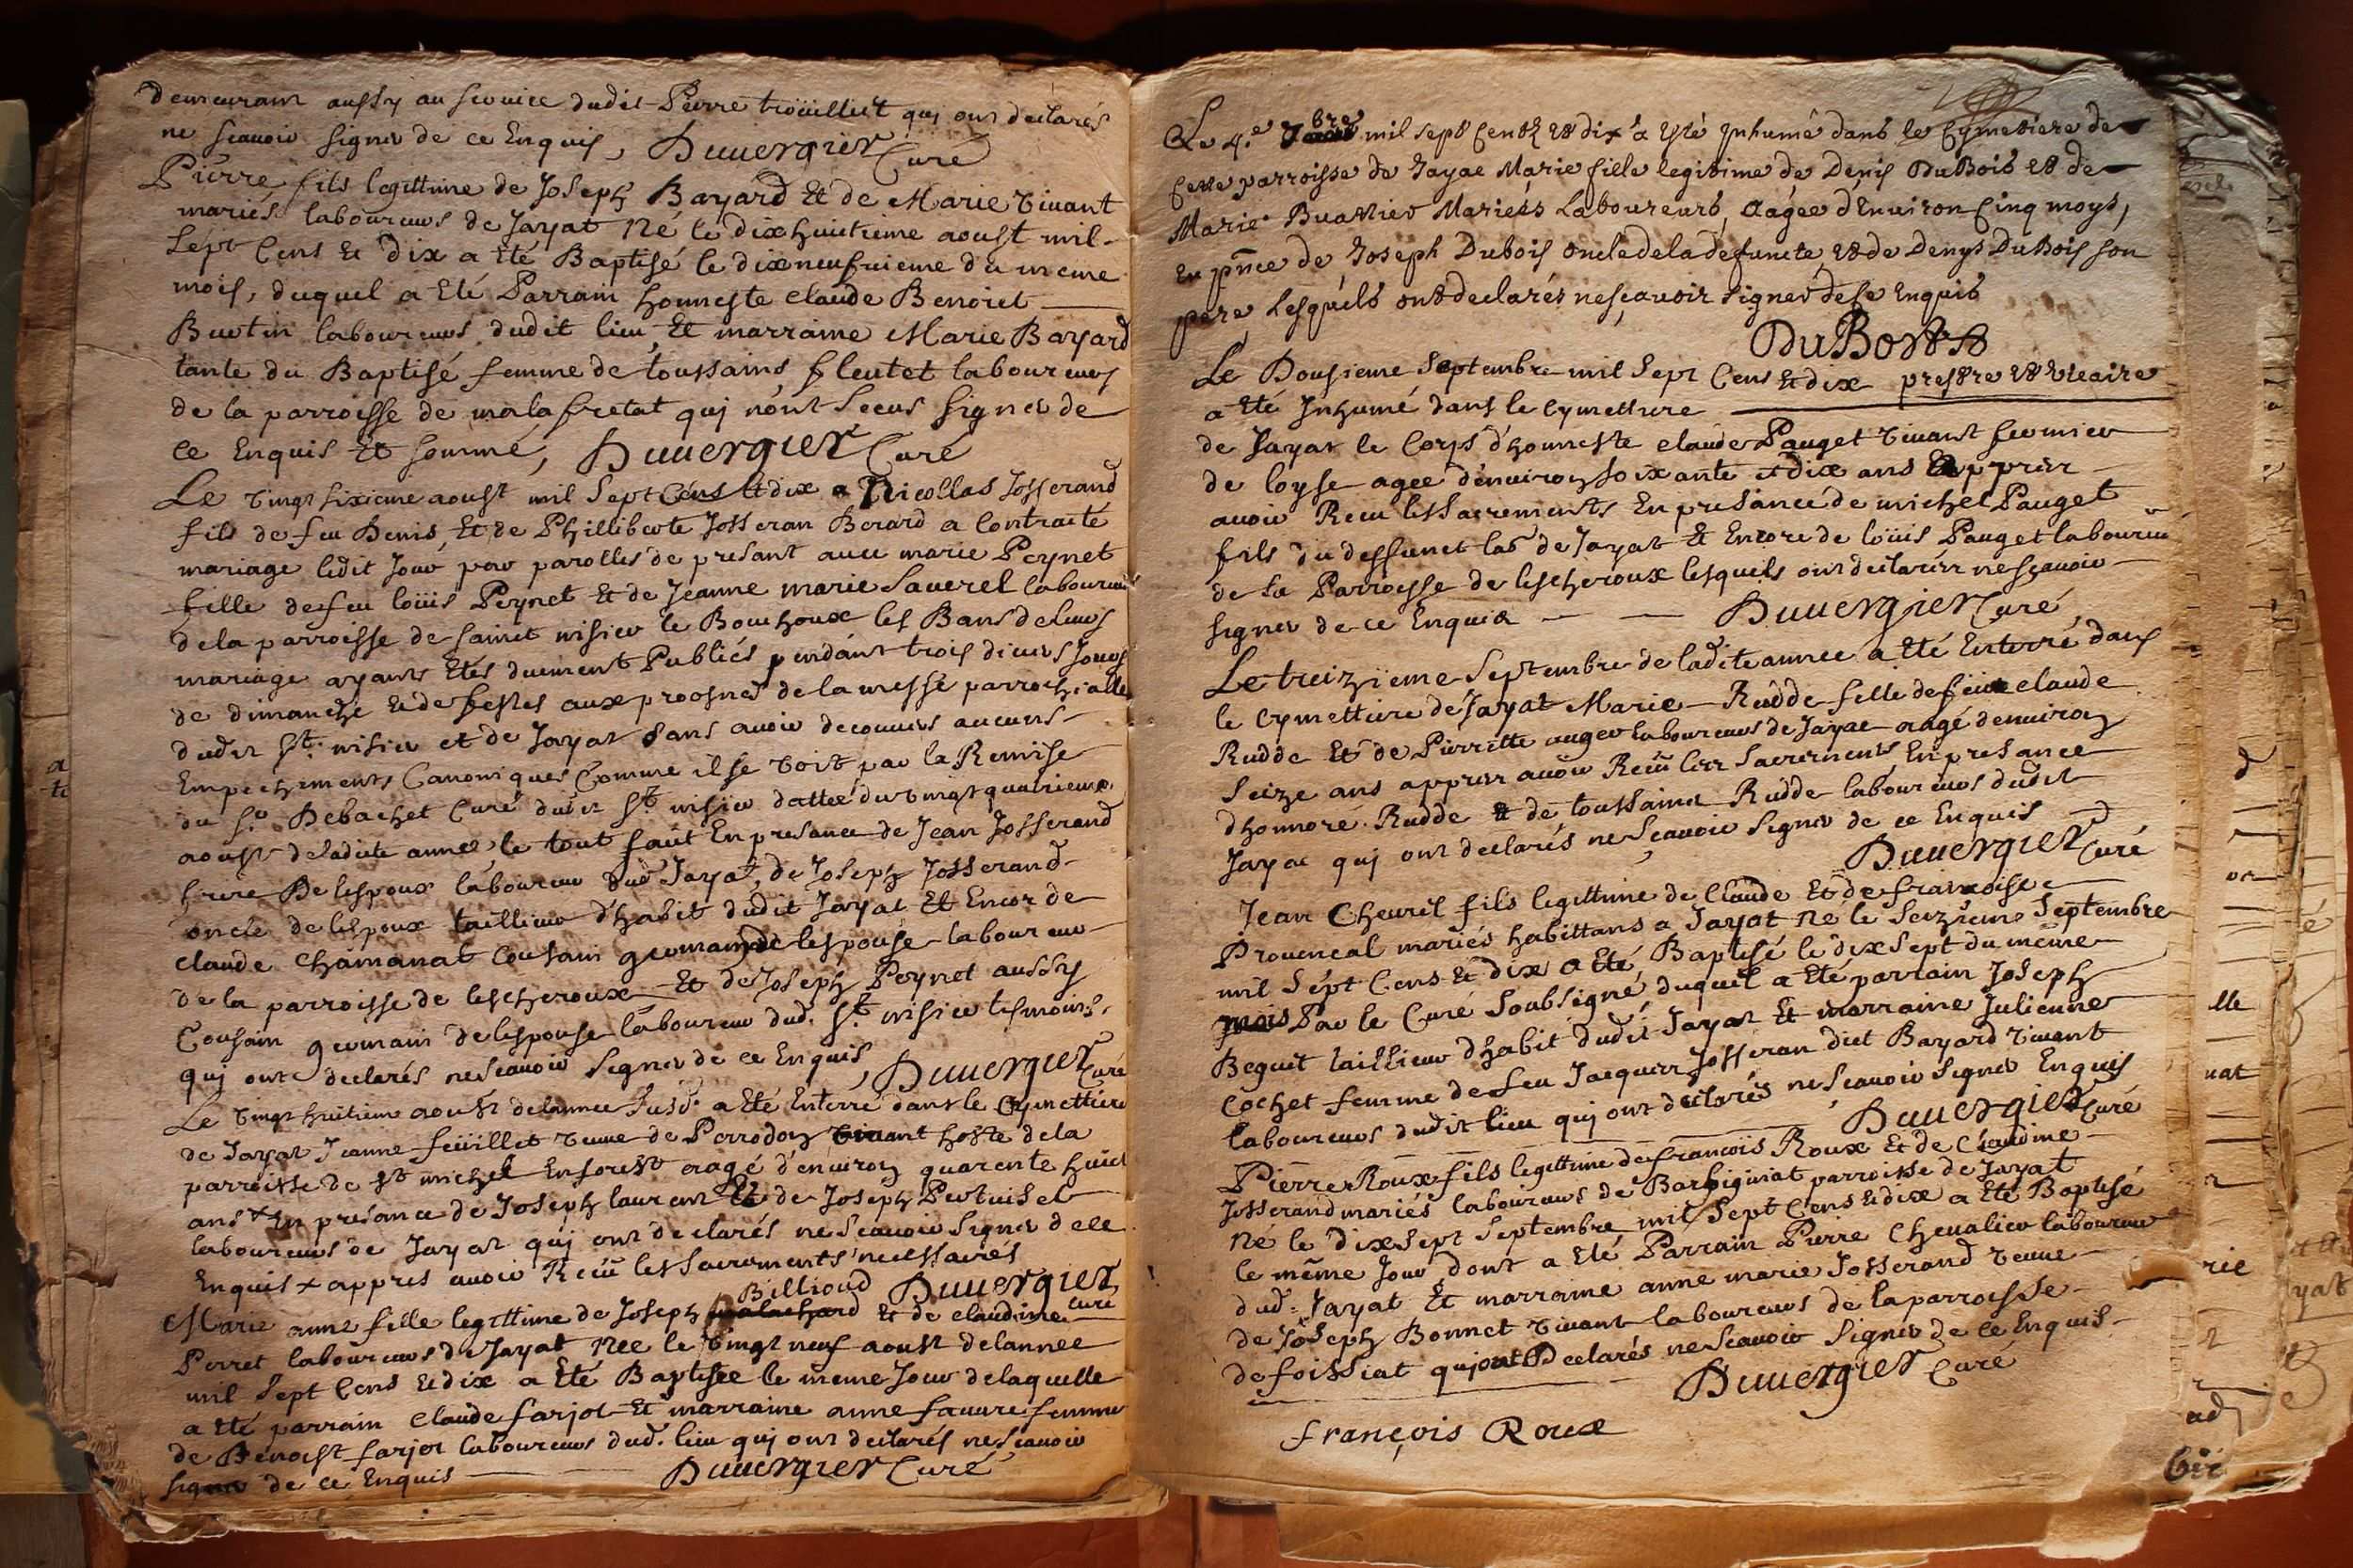 demeurant aussy au service dudit Pierre troüilliet qui ont declarés
ne scavoir signer de ce Enquis, Duuergier Curé
Pierre fils legittime de Joseph Bayard Et de Marie Vivant
mariés laboureurs de Jayat Né le dixhuictieme aoust mil
Sept Cens Et dix a Eté Baptisé le dixneufuieme du meme
mois, duquel a Eté Parrain honneste claude Benoict
Buetin laboureurs dudit lieu, Et marraine Marie Bayard
tante du Baptisé femme de toussains fleutet laboureurs
de la parroisse de malafretat qui n'ont sceus signer de
ce Enquis Et sommé, Duuergier Curé
Le vingt sixieme aoust mil Sept Cens Et dix a Nicollas Josserand
fils de feu Denis, Et de Philliberte Josseran Berard a Contracté
mariage ledit Jour par parolles de presant avec marie Peynet
fille de feu loüis Peynet Et de Jeanne marie Saverel laboureurs
de la parroisse de sainct nisier le Bouchoux les Bans de leurs
mariage ayants Etés duement Publiés pendant trois divers Jours
de dimanche Et de festes aux prosnes de la messe parrochialle
dudit St. nisier et de Jayat Sans avoir decouvers aucuns
Empechements Canoniques Comme il se voit par la Remise
du Sr. Debachet Curé dudit St. nisier dattée du vingt quatrieme
aoust de ladicte année, le tout faict En presance de Jean Josserand
frere De lespoux laboureur dud Jayat, de Joseph Josserand
oncle de lespoux tailleur d'habit dudit Jayat Et Encor de
claude Chamanat Cousain germain de lespouse laboureur
de la parroisse de lescheroux Et de Joseph Peynet aussy
Cousain germain de lespouse laboureur dud. St. nisier tesmoins,
qui ont declarés ne scavoir signer de ce Enquis, Duuergier Curé
Le vingt huitieme aoust de lannee susd. a Eté Enterré dans le Cymettiere
de Jayat Jeanne feüillet veuve de Perrodon vivant hoste de la
parroisse de St michel Enforest aagé d'environ quarente huict
ans + En presance de Joseph laurent Et de Joseph Pertuiset
laboureurs de Jayat qui ont declarés ne scavoir signer de ce
Enquis + appres avoir Reçû les Sacrements necessaires
Billioud Duuergier Curé
Marie anne fille legittime de Joseph Et de claudine
Perret laboureurs de Jayat Née le vingt neuf aoust de lannee
mil Sept Cens Et dix a Eté Baptisée le meme Jour de laquelle
a Eté parrain claude farjot Et marraine anne favvre femme
de Benoist farjot laboureurs dud. lieu qui ont declarés ne scavoir
signer de ce Enquis Duuergier Curé
Le 4.e 7bre mil sept Centz et dix a esté Jnhumé dans le Cymetiere de
cette parroisse de Jayac Marie fille legitime de Denis DuBois et de
Marie Buattier Mariéés Laboureurs, aagée d'Environ Cinq moys,
en pnce de Joseph Dubois oncle de la defuncte, et de Denys DuBois son
pere Lesquels ont declarés ne sçavoir signer de se Enquis
DuBost
Le Dousieme Septembre mil Sept Cens Et dix prestre et vicaire
a Eté Jnhumé dans le Cymettiere
de Jayat le Corps d'honneste claude Pauget vivant fermier
de loyse agee d'environ soixante et dix ans apprer
avoir Receu les Sacrements En presance de michel Pauget
fils du deffunct lab de Jayat Et Encore de loüis Pauget laboureur
de la Parroisse de lescheroux lesquels ont declarér ne scavoir
signer de ce Enquis Duuergier Curé
Le treizieme Septembre de ladite annee a Eté Enterré dans
le cymettiere de Jayat Marie Rudde fille de feu claude
Rudde Et de Pierrette auger laboureurs de Jayac aagé denviron
seize ans apprer avoir Receü les Sacrements En presance
d'honnoré Rudde Et de toussaint Rudde laboureurs dudit
Jayac qui ont declarés ne scavoir signer de ce Enquis
Duuergier Curé
Jean Chevril fils legittime de Claude Et de francoise
Provencal mariés habittans a Jayat Né le Seizieme Septembre
mil Sept Cens Et dix a Eté Baptisé le dix Sept du même
mois Par le Curé Soubsigné duquel a Eté parrain Joseph
Beguet taillieur dhabit dudit Jayat Et marraine Julienne
Cochet femme de feu Jacquer Josseran dict Bayard vivant
laboureurs dudit lieu qui ont declarés ne scavoir signer Enquis
Duuergier Curé
Pierre Roux fils legittime de francois Roux Et de Claudine
Josserand mariés laboureurs de Barbiguiat parroisse de Jayat
Né le dixSept Septembre mil Sept Cens Et dix a Eté Baptisé
le même Jour dont a Eté Parrain Pierre Chevalier laboureur
dud. Jayat Et marraine anne marie Josserand veuve
de Joseph Bonnet vivant laboureurs de la parroisse
de foissiat qui ont Declarés ne scavoir signer de ce Enquis
Duuergier Curé
françois Roux